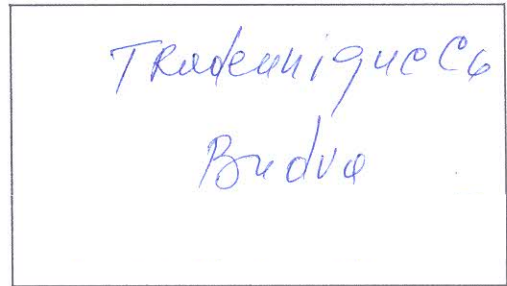 TRadeunique Co
Budva